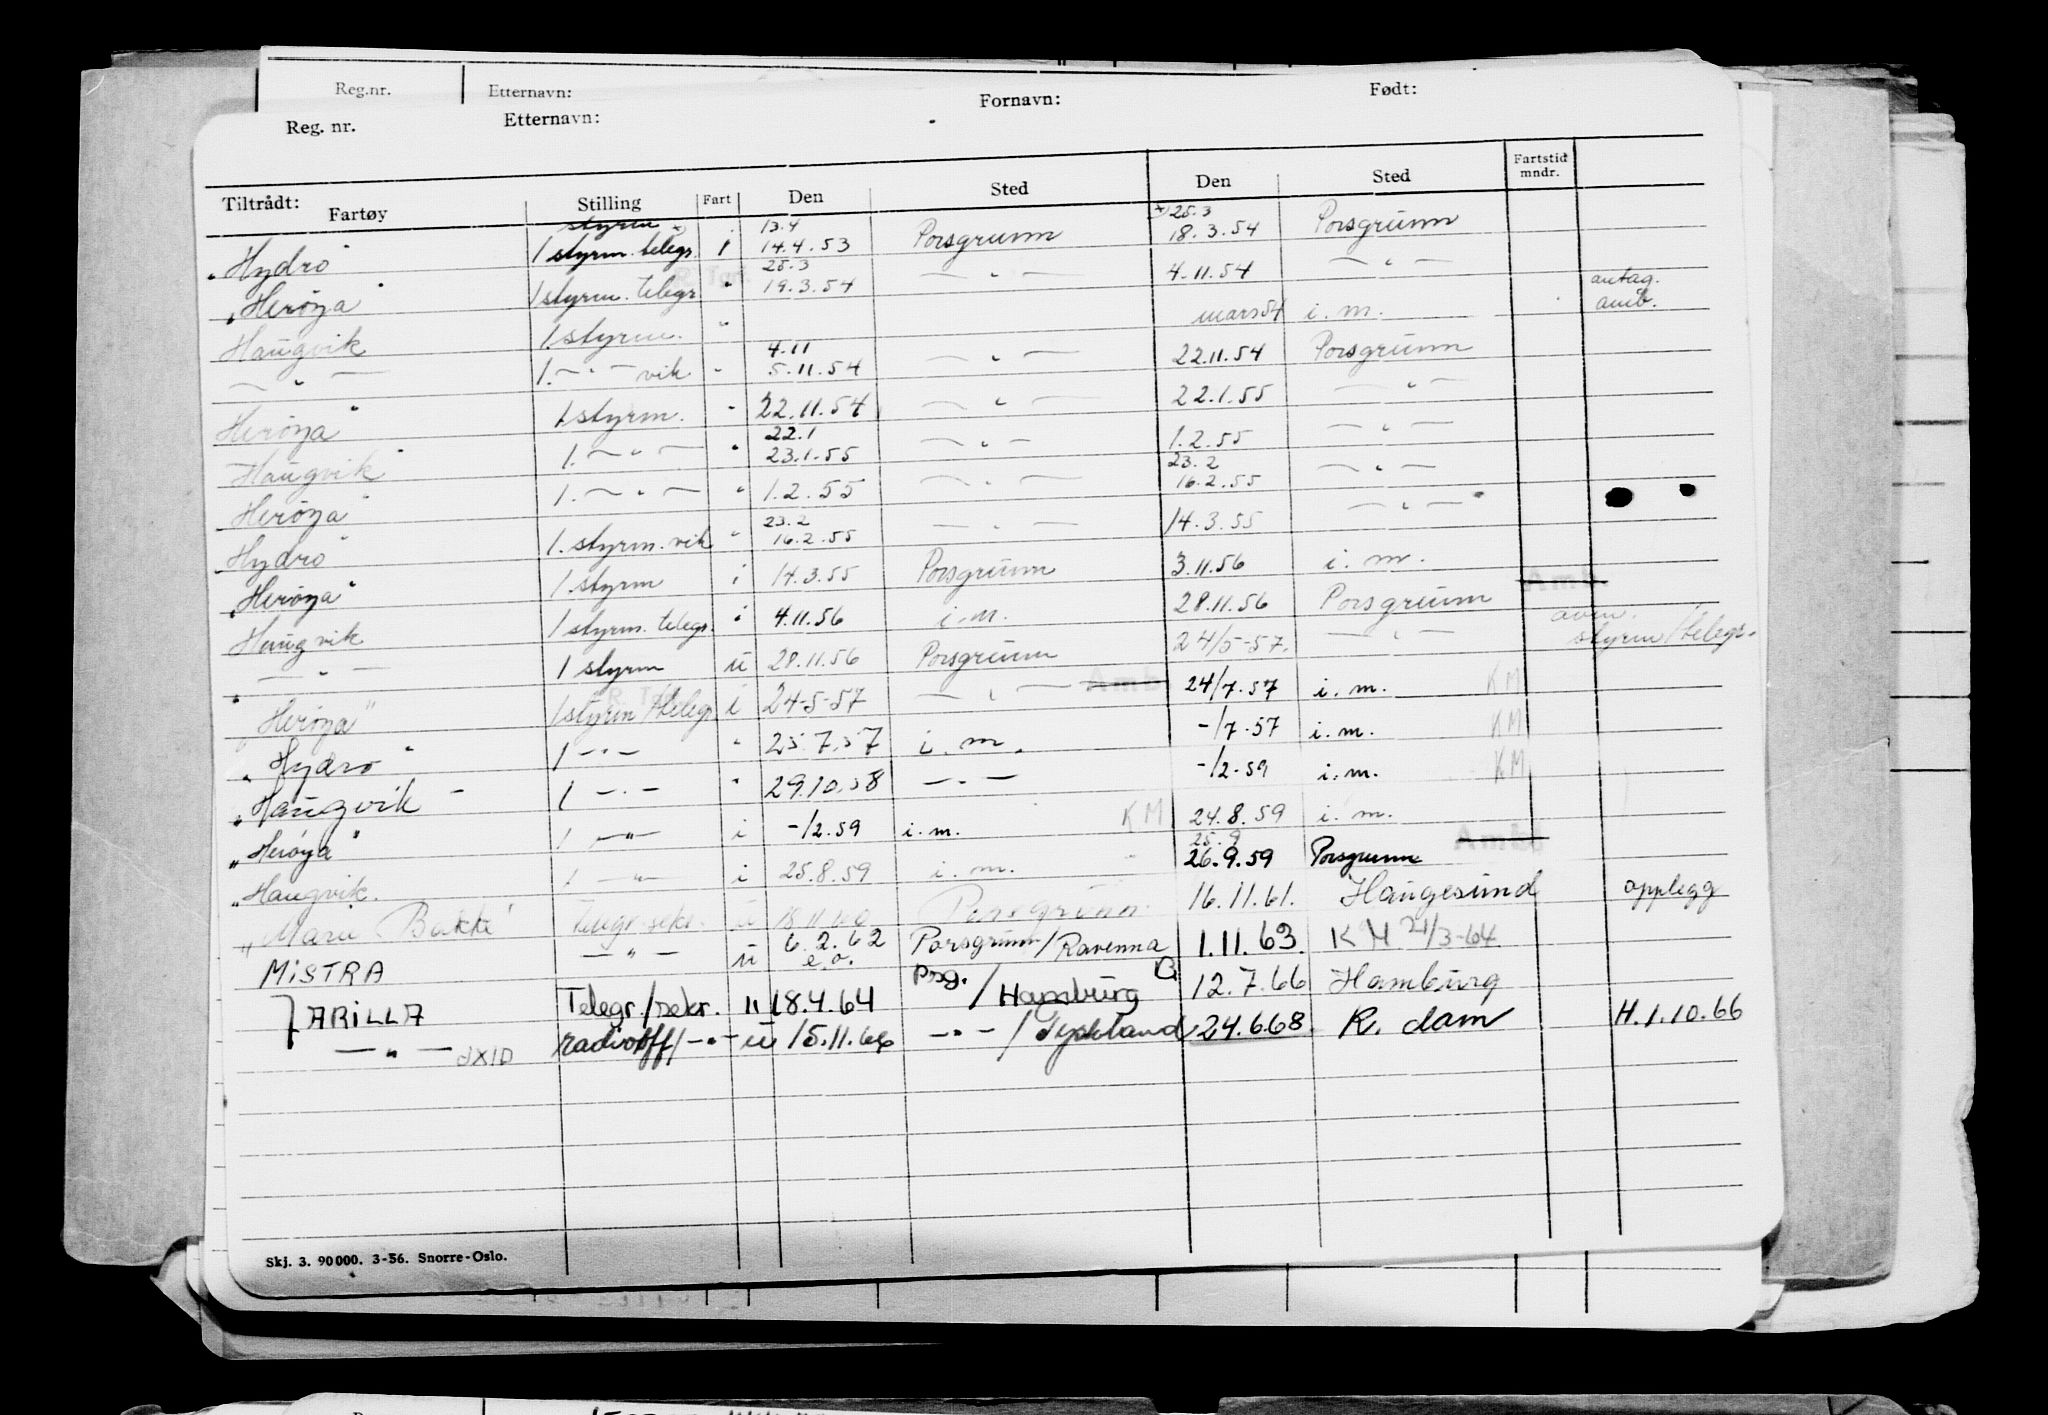 Reg.nr. Etternavn: Fornavn: Født:
Reg. nr. Etternavn:
Tiltrådt: Fartøy Stilling Fart Den Sted Den Sted Fartstid mndr.
styrm 13.4 25.3
"Hydro" 1 styrm. telegr. i 14.4.53 Porsgrunn 18.3.54 Porsgrunn
25.3
"Herøya" 1 styrm. telegr " 19.3.54 — " — 4.11.54 — " —
antag.
Haugvik 1. styrm. " mars 54 i. m. amb.
4.11
— " — 1. — " — vik " 5.11.54 — " — 22.11.54 Porsgrunn
Herøya" 1 styrm. " 22.11.54 — " — 22.1.55 — " —
22.1
Haugvik" 1. — " — " 23.1.55 — " — 1.2.55 — " —
23.2
Herøya" 1. — " — " 1.2.55 — " — 16.2.55 — " —
23.2
Hydro" 1. styrm. vik " 16.2.55 — " — 14.3.55 — " —
"Herøya" 1. styrm i 14.3.55 Porsgrunn 3.11.56 i. m.
Haugvik 1 styrm. telegr. i 4.11.56 i. m. 28.11.56 Porsgrunn Amb.
— " — 1 styrm u 28.11.56 Porsgrunn 24/5-57. — " — styrm/telegr.
"Herøya" 1 styrm/telegr i 24-5-57 — " — Amb 24/7.57 i. m. KM
"Hydro" 1 — " — " 25.7.57 i. m. -/7-57 i. m. KM
"Haugvik" 1 — " — " 29.10.58 — " — -/2-59 i. m. KM
"Herøya" 1 — " — i -/2.59 i. m. KM 24.8.59 i. m.
25.9 Amb
"Haugvik. 1 — " — i 25.8.59 i. m. 26.9.59 Porsgrunn
"Marie Bakke" Telegr. sekr. u 18.11.60 Porsgrunn 16.11.61. Haugesund opplegg
MISTRA — " — u 6.2.62 e.o. Porsgrunn/Ravenna 1.11.63. KM 21/3-64
JARILLA Telegr./sekr. u 18.4.64 Prsg./Hamburg 12.7.66 Hamburg
— " — JXID radiooff/— " — u 15.11.66 — " — /Tyskland 24.6.68. R. dam H.1.10.66
Skj. 3. 90000. 3-56. Snorre-Oslo.